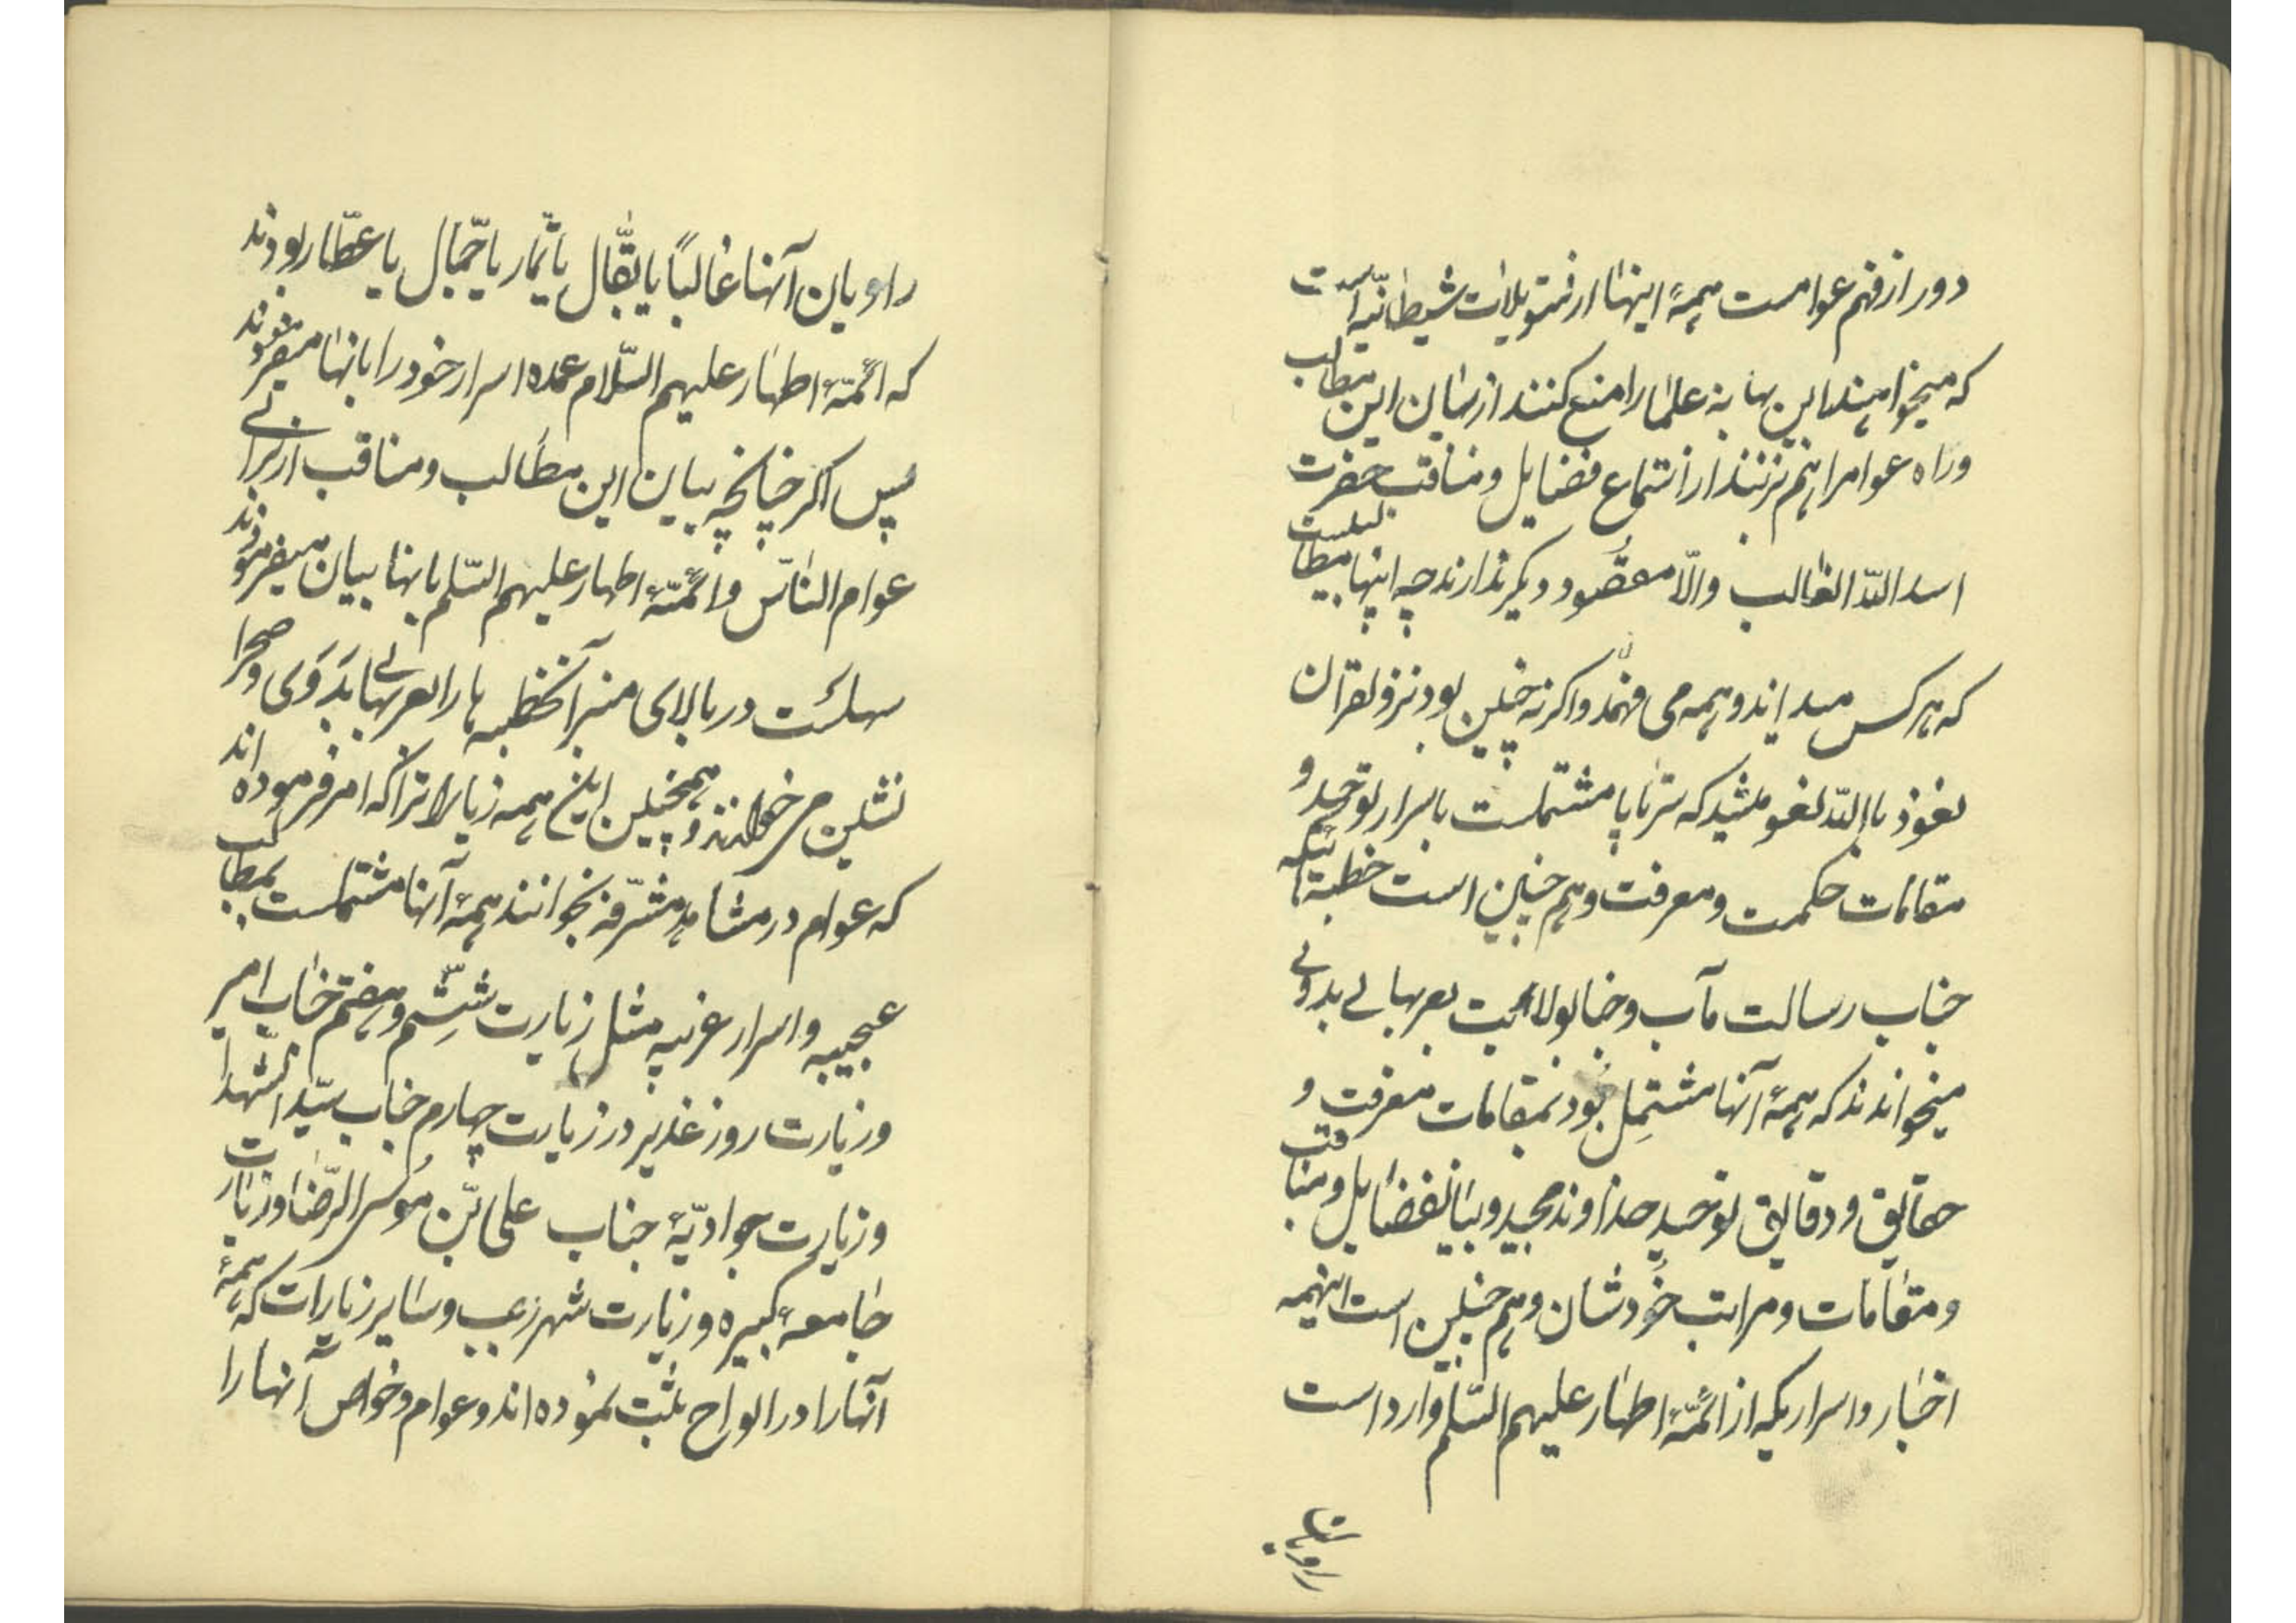 دور از فهم عوامست همهٔ اینها از تسویلات شیطانیّه است
که میخواهند باین بهانه علما را منع کنند از بیان این مطالب
و راه عوامرا هم بزنند از استماع فضایل و مناقب حضرت
اسد اللّه الغالب و الّا مقصود دیگر ندارند چه اینها مطالبیست
که هر کس میداند و همه می فهمند و اگر نه چنین بود نزول قرآن
نعوذ باللّه لغو میشد که سرتاپا مشتملست باسرار توحید و
مقامات حکمت و معرفت و هم چنین است خطبهٔ که
جناب رسالت مآب و جناب ولایت بعربهای بدوی
میخواندند که همهٔ آنها مشتمل بود بمقامات معرفت و
حقایق و دقایق توحید خداوند مجید و بیان فضایل و مناقب
و مقامات و مراتب خودشان و هم چنین است اینهمه
اخبار و اسراریکه از ائمّهٔ اطهار علیهم السّلم وارد است
راویان
راویان آنها غالباً یا بقّال یا تمّار یا جمّال یا عطّار بودند
که ائمّهٔ اطهار علیهم السّلام عمده اسرار خود را بآنها میفرمودند
پس اگر چنانچه بیان این مطالب و مناقب از برای
عوام النّاس و ائمّهٔ اطهار علیهم السّلم بآنها بیان میفرمودند
در بالای منبر آن خطبه ها را بعربهای بدوی و صحرا
نشین می خواندند و همچنین این همه زیارلاترا که امر فرموده اند
که عوام در مشاهد مشرّفه بخوانند همهٔ آنها مشتملست بمطالب
عجیبه و اسرار غریبه مثل زیارت ششم و هفتم جناب امیر
و زیارت روز غدیر در زیارت چهارم جناب سیّد الشّهدا
و زیارت جوادیّهٔ جناب علی ابن موسی الرّضا و زیارت
جامعهٔ کبیره و زیارت شهر رجب و سایر زیارات که همهٔ
آنها را در الواح ثبت نموده اند و عوام و خواص آنها را